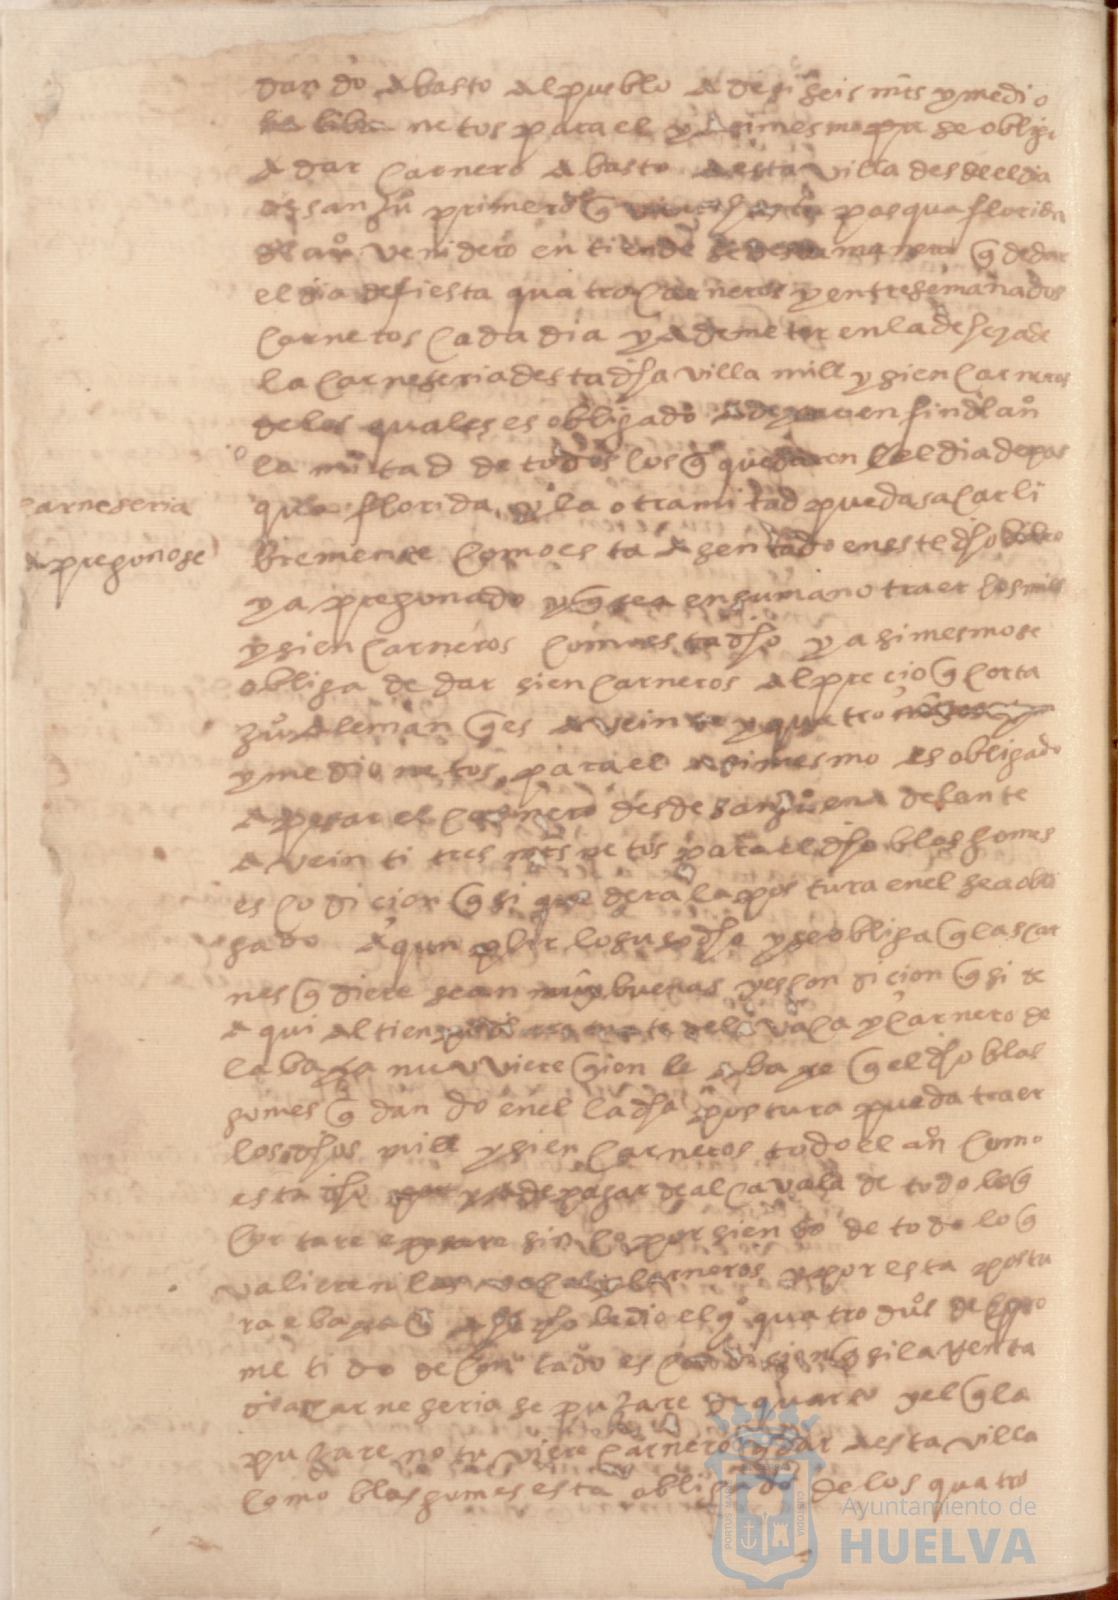 dando abasto al pueblo a diez y seis mrs y medio
netos para el y asimesmo se obliga
a dar carnero abasto a esta villa desde el dia
de san juº primero q pasqua florida
del año venidero entiende se desta manera q a de dar
el dia de fiesta quatro carneros y entre semana dos
carneros cada dia y a de meter en la deheza de
la carneseria desta dha villa mill y sien carneros
de los quales es obligado a en fin del año
la mitad de todos los q quedaren el dia de pas
qua florida y la otra mitad pueda sacar li
carneseria
apregonose
bremente como esta asentado en este dho libro
y a pregonado y q sea en su mano traer los mill
y sien carneros como esta dho y asimesmo se
obliga de dar sien carneros al precio q corta
juº aleman q es a veinte y quatro mrs
y medio netos para el asimesmo es obligado
a pesar el carnero desde san juº en adelante
a veinti tres mrs netos para el dho blas gomes
es condicion q si quedara la postura en el sea obli
gado a qunplir lo suso dho y se obliga q las car
nes q diere sean muy buenas y es condicion q si de
aqui al tienpo del remate de la vaca y carnero de
la baxa nuviere qien le abaxe q el dho blas
gomes q dando en el la dha postura pueda traer
los dhos mill y sien carneros todo el año como
esta dho y a de pagar de alcavala de todo lo q
cortare e pesare sinco por siento de todo lo q
valieren las vacas carneros y por esta postu
ra e baxa q a dho le dio el qº quatro duºs de
metido de contado es condision q si la renta
de la carneseria se pujare de quarto y el q la
pujare no tuviere carneros q dar a esta villa
como blas gomes esta obligado de los quatro
PORTUS MARIS
CUSTODIA
Ayuntamiento de
HUELVA